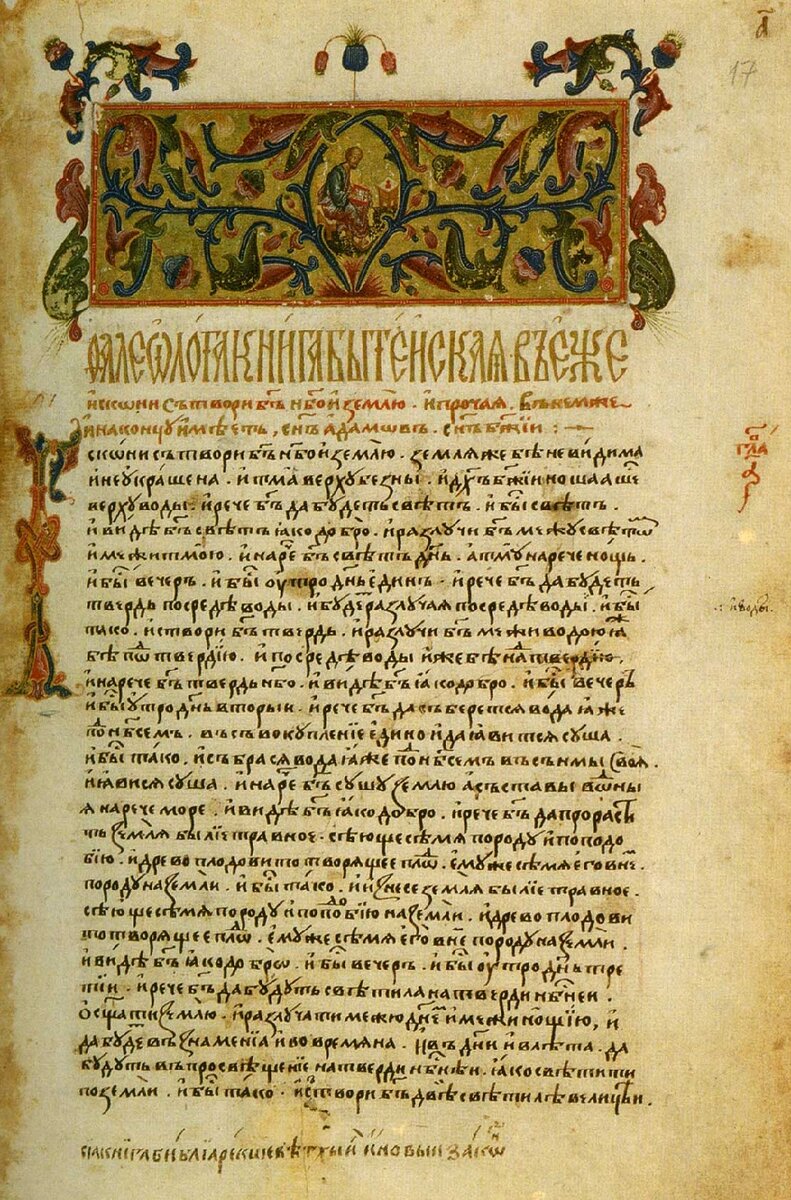 а҃
17
ѱалеѿлогꙗ книга бытейскаꙗ въеже
искони сътвори бг҃ъ нб҃о и землю . и прочая . въ немже
и на концу имѣеть , сн҃ъ адамовъ . сн҃ъ бж҃їи :
гла҃ а҃
Искони сътвори бг҃ъ нб҃о и землю . земля же бѣ не видима
и не украшена . и тма верху безны . и дх҃ъ бж҃їи ношааше
верху воды . и рече бг҃ъ да будеть свѣтъ . и бы҃ свѣтъ .
и видѣ бг҃ъ свѣтъ ꙗко добро . и разлучи бг҃ъ межу свѣтѿ
и межи тмою . и наре҃ бг҃ъ свѣтъ дн҃ь . а тму нарече нощь .
и бы҃ вечеръ . и бы҃ оутро дн҃ь единъ . и рече бг҃ъ да будеть
твердь посредѣ воды . и буде҃ разлучая посредѣ воды . и бы҃
и воды .
тако . и створи бг҃ъ твердь . и разлучи бг҃ъ межи водою ꙗ҃ж
бѣ по҃д твердїю . и посредѣ воды иже бѣ на҃д твердїю .
и нарече бг҃ъ твердь нб҃о . и видѣ бг҃ъ ꙗко добро . и бы҃ вечеръ
и бы҃ утро дн҃ь вторыи . и рече бг҃ъ да съберется вода ꙗже
по҃д нб҃семъ . въ съвокупленїе едино и да ꙗвится суша .
и бы҃ тако . и събрася вода ꙗже по҃д нб҃семъ въ сънмы своя .
и ꙗвися суша . и наре҃ бг҃ъ сушу землю а съставы во҃дны
я нарече море . и видѣ бг҃ъ ꙗко добро . и рече бг҃ъ да прораст҃и
ть земля былїе травное . сѣюще сѣмя по роду и по подо
бїю . и древо плодовито творящее пло҃д . емуже сѣмя его в не҃м .
по роду на земли . и бы҃ тако . и изнесе земля былїе травное .
сѣюще сѣмя по роду и по подобїю на земли . и древо плодови
то творящее пло҃д . емуже сѣмя его в не҃м по роду на земли .
и видѣ бг҃ъ ꙗко добрѡ . и бы҃ вечеръ . и бы҃ оутро дн҃ь тре
тїи . и рече бг҃ъ да будуть свѣтила на тверди нб҃нѣи .
осща҃ти землю . и разлучати межю дне҃м и межи нощїю , и
да буду҃т въ знаменїа и во времяна . и въ дн҃и и в лѣта . да
будуть въ просвѣщенїе на тверди нб҃нѣи . ꙗко свѣтити
по земли . и бы҃ тако . и створи бг҃ъ двѣ свѣтилѣ велицѣи .
сїа книга библїа рекше ветхыи и новыи законъ